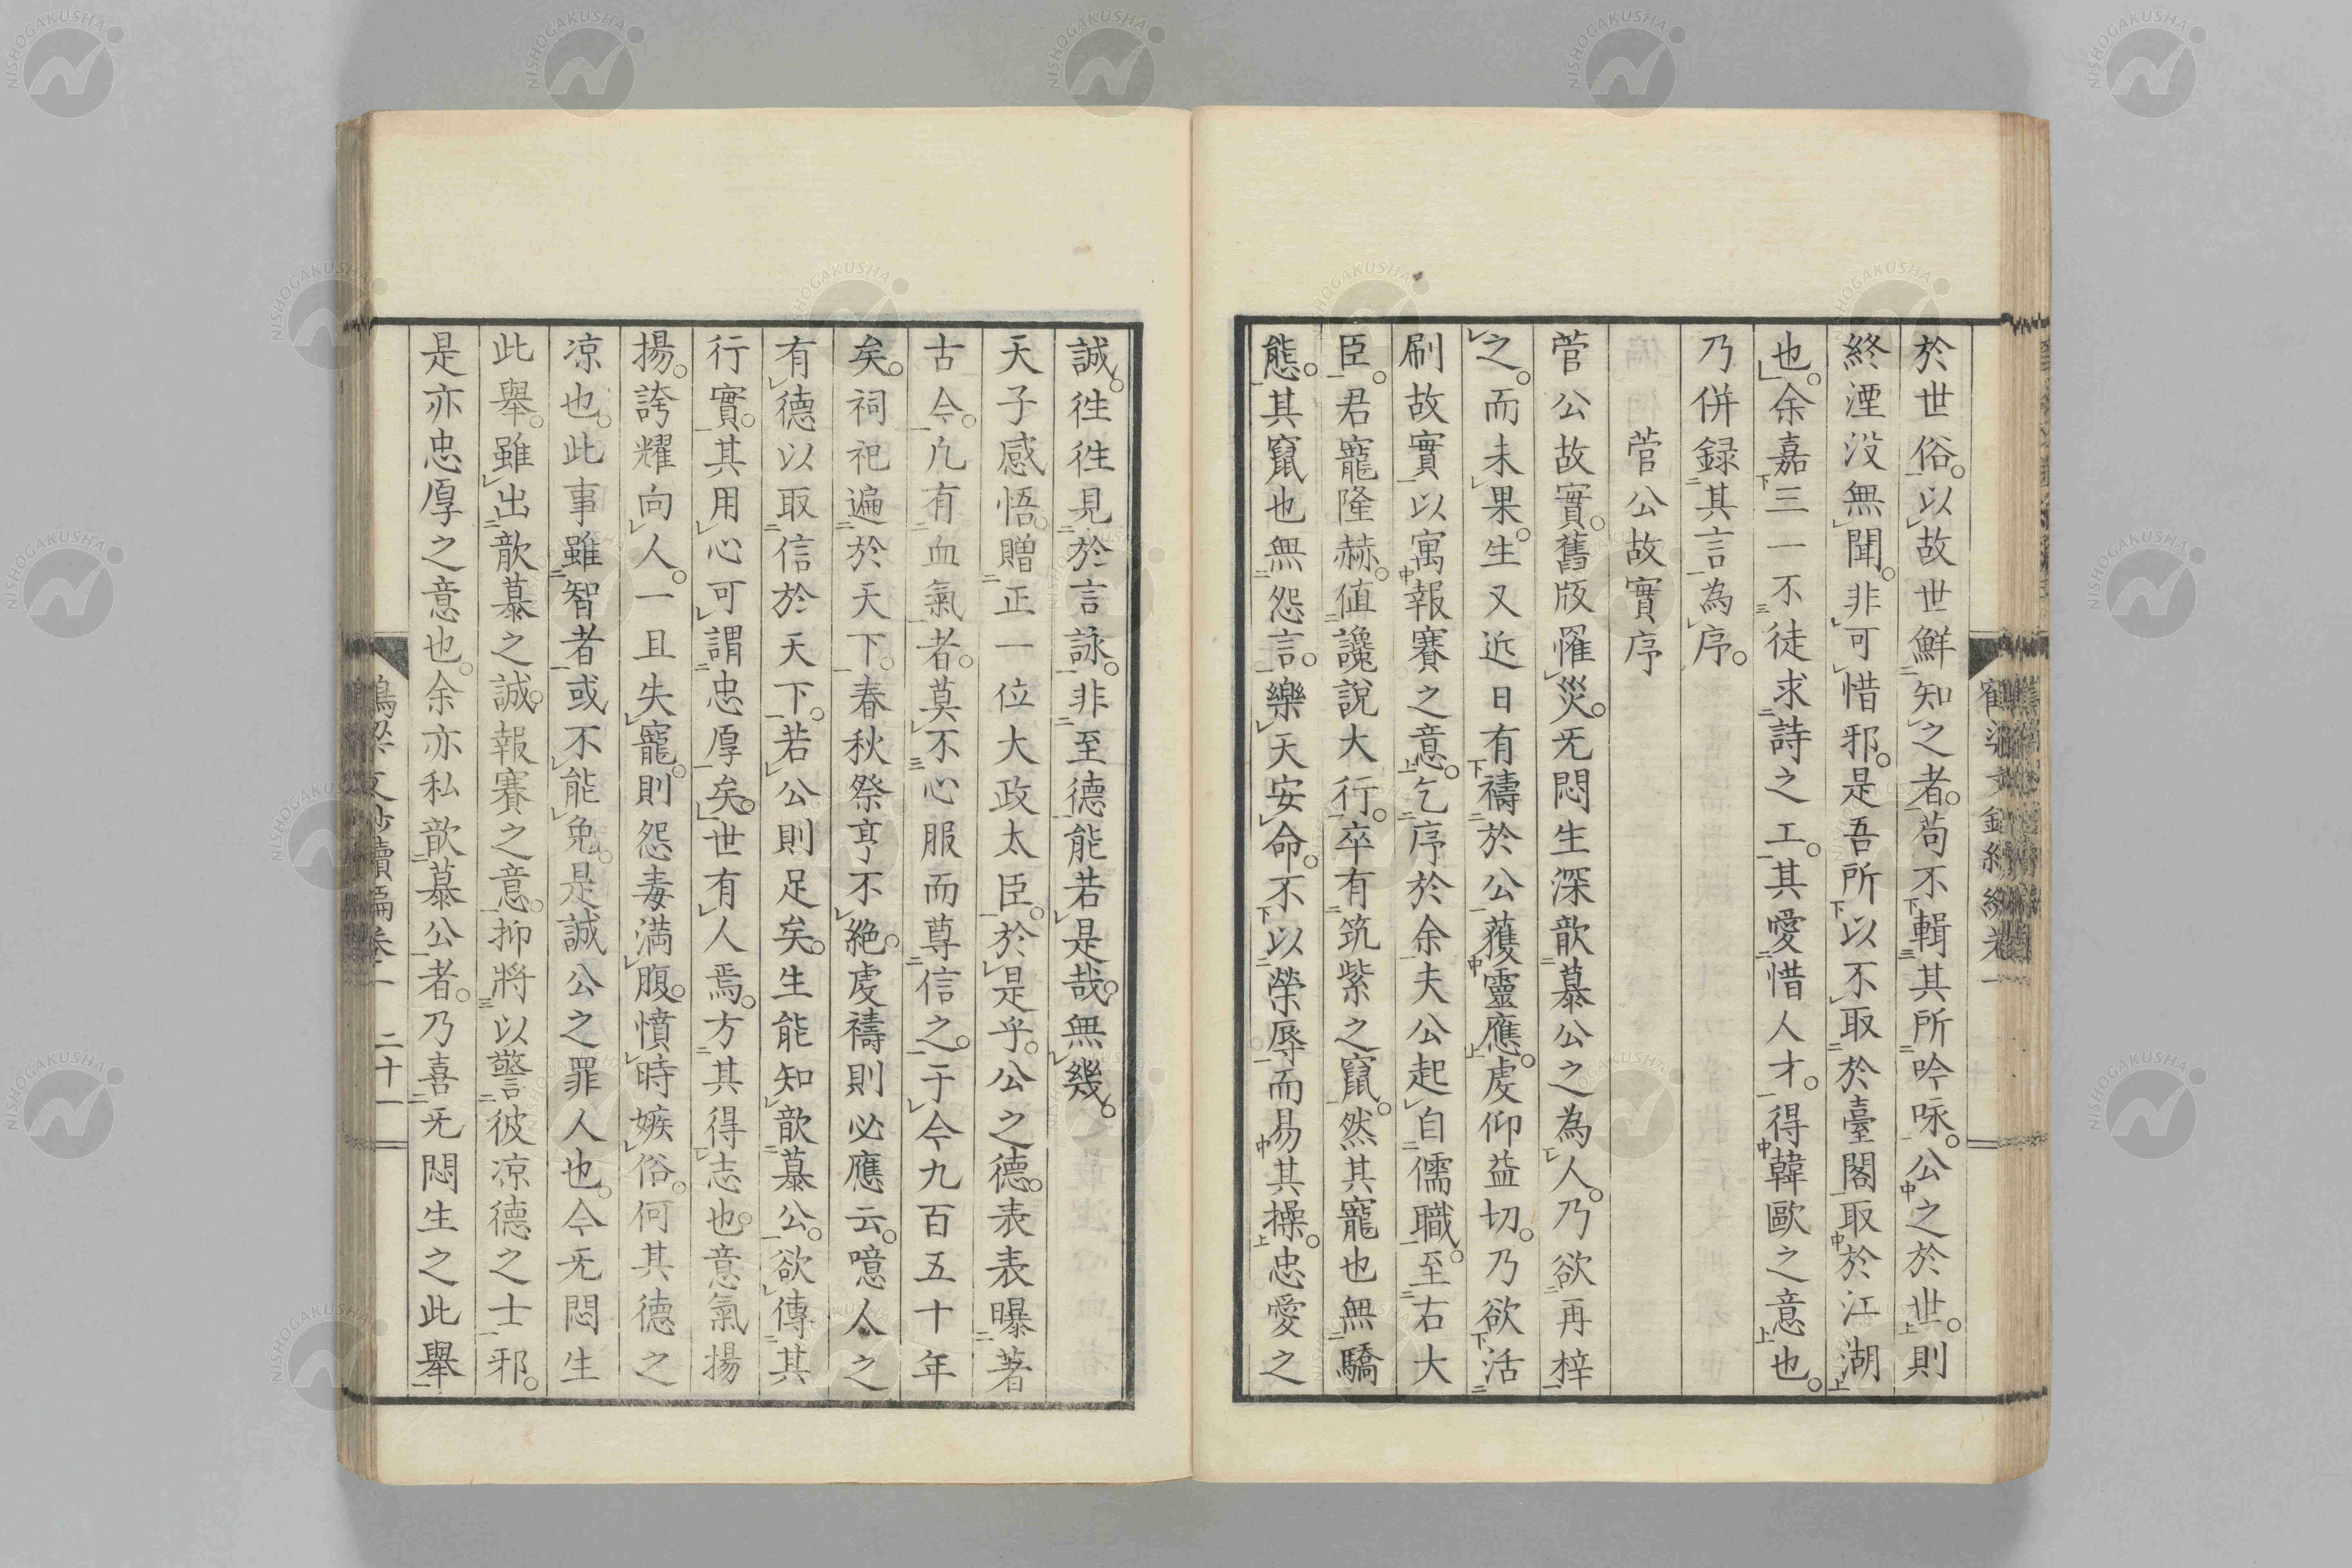 於世俗。以故世鮮知之者。苟不輯其所吟咏。公之於世。則
終湮没無聞。非可惜邪。是吾所以不取於臺閣。取於江湖
也。余嘉三一不徒求詩之工。其愛惜人才。得韓歐之意也。
乃併録其言為序。
菅公故實序
菅公故實。舊版罹災。无悶生深歆慕公之為人。乃欲再梓
之。而未果。生又近日有禱於公。獲靈應。虔仰益切。乃欲活
刷故實。以寓報賽之意。乞序於余。夫公起自儒職。至右大
臣。君寵隆赫。值讒說大行。卒有筑紫之竄。然其寵也無驕
態。其竄也無怨言。樂天安命。不以榮辱而易其操。忠愛之
誠。徃徃見於言詠。非至德能若是哉。無幾。
天子感悟。贈正一位大政太臣。於是乎。公之德。表表曝著
古今。凡有血氣者。莫不心服而尊信之。于今九百五十年
矣。祠祀遍於天下。春秋祭享不絶。虔禱則必應云。噫人之
有德以取信於天下。若公則足矣。生能知歆慕公。欲傳其
行實。其用心可謂忠厚矣。世有人焉。方其得志也。意氣揚
揚。誇耀向人。一旦失寵。則怨毒満腹。憤時嫉俗。何其德之
凉也。此事雖智者或不能免。是誠公之罪人也。今无悶生
此舉。雖出歆慕之誠。報賽之意。抑將以警彼凉德之士邪。
是亦忠厚之意也。余亦私歆慕公者。乃喜无悶生之此舉
二十一